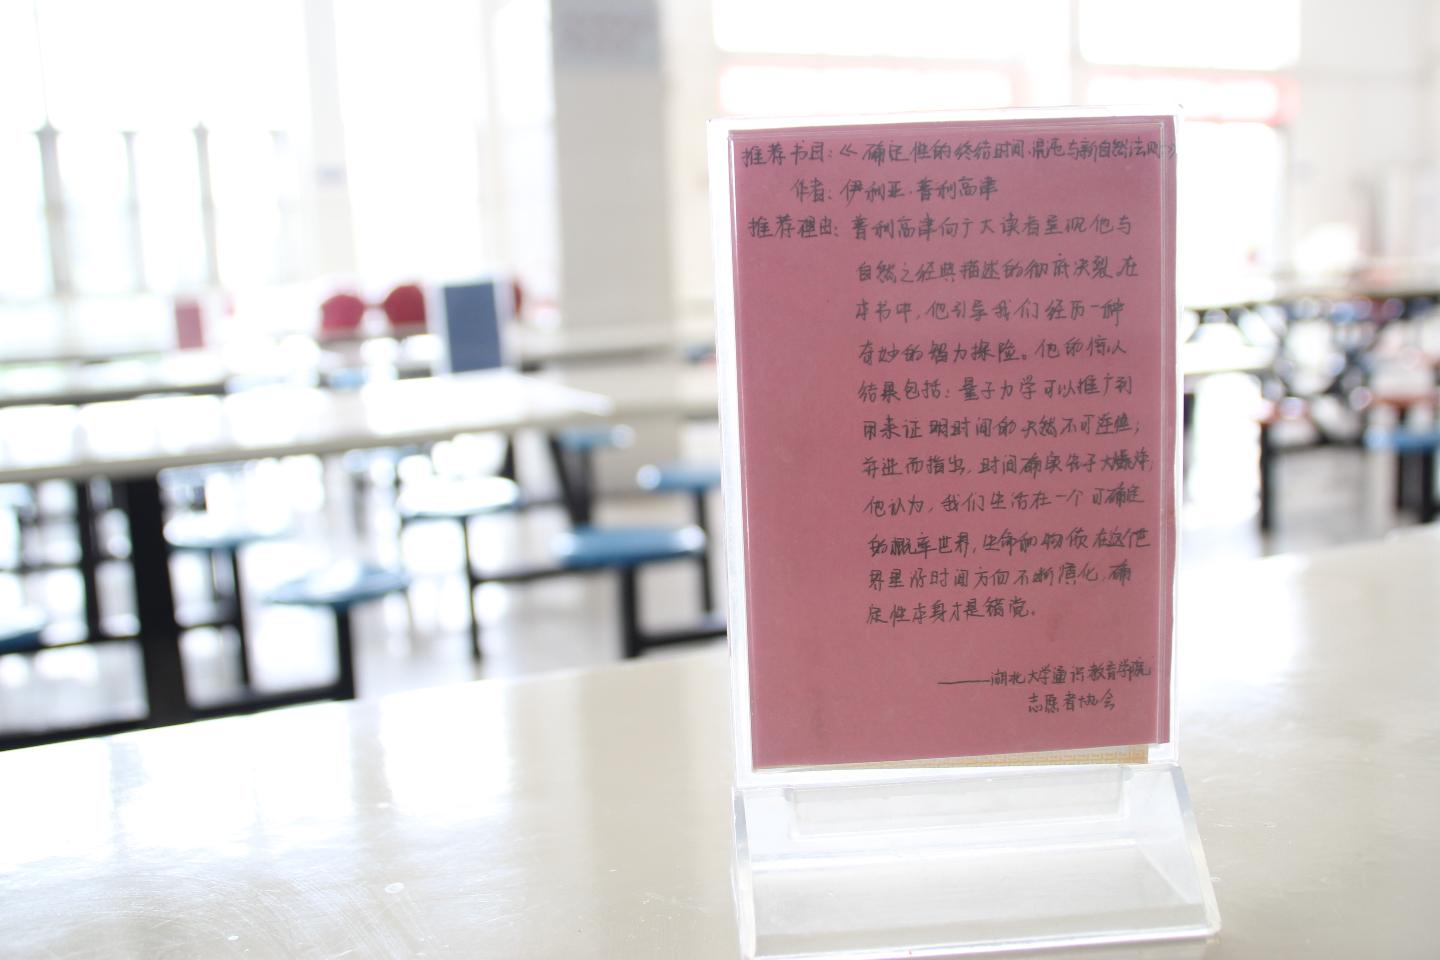 推荐书目：《确定性的终结时间、混沌与新自然法则》
作者：伊利亚·普利高津
推荐理由：普利高津向广大读者呈现他与
自然之经典描述的彻底决裂,在
本书中，他引导我们经历一种
奇妙的智力探险。他的惊人
结果包括：量子力学可以推广到
用来证明时间的天然不可逆性；
并进而指出，时间确实先于大爆炸，
他认为，我们生活在一个可确定
的概率世界，生命和物质在这个世
界里沿时间方向不断演化，确
定性本身才是错觉。
——湖北大学通识教育学院
志愿者协会